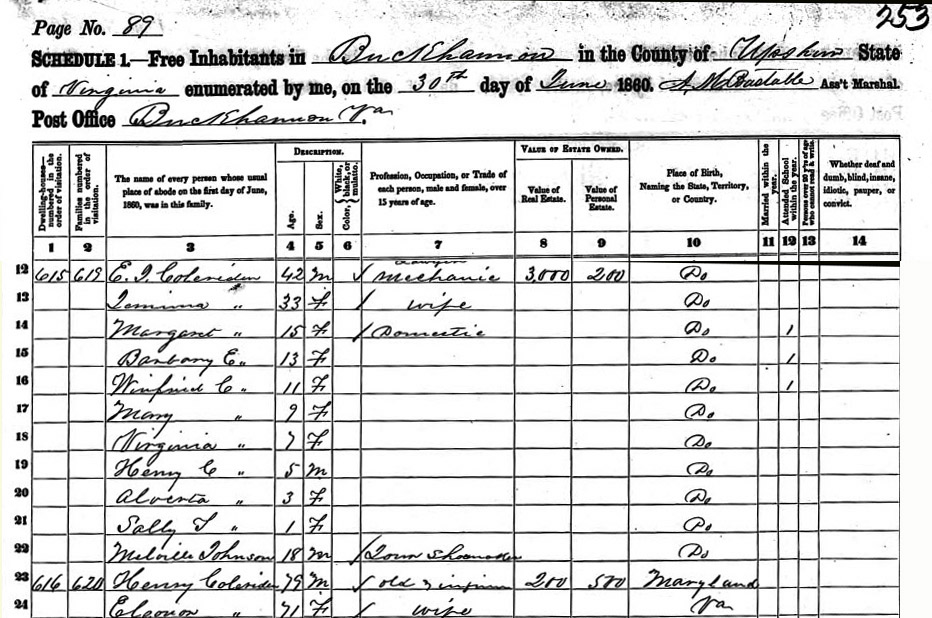 253
Page No. 89
SCHEDULE 1.—Free Inhabitants in Buckhannon in the County of Upshur State
of Virginia enumerated by me, on the 30th day of June 1860. Ass't Marshal.
Post Office Buckhannon Va
Dwelling-houses—numbered in the order of visitation.
Families numbered in the order of visitation.
The name of every person whose usual place of abode on the first day of June, 1860, was in this family.
DESCRIPTION.
Age.
Sex.
Color, { White, black, or mulatto.
Profession, Occupation, or Trade of each person, male and female, over 15 years of age.
VALUE OF ESTATE OWNED.
Value of Real Estate.
Value of Personal Estate.
Place of Birth, Naming the State, Territory, or Country.
Married within the year.
Attended School within the year.
Persons over 20 y'rs of age who cannot read & write.
Whether deaf and dumb, blind, insane, idiotic, pauper, or convict.
1 2 3 4 5 6 7 8 9 10 11 12 13 14
12 615 619 E. J. Coleriden 42 M / Mechanic 3,000 200 Do
13 Jemima " 33 F / wife Do
14 Margaret " 15 F / Domestic Do 1
15 Barbary E. " 13 F Do 1
16 Winfrid C. " 11 F Do 1
17 Mary " 9 F Do
18 Virginia " 7 F Do
19 Henry C " 5 M Do
20 Alverta " 3 F Do
21 Sally T " 1 F Do
22 Melville Johnson 18 M / Shoemaker Do
23 616 620 Henry Coleriden 79 M / old 200 500 Maryland
24 Eleanor " 71 F / wife Va